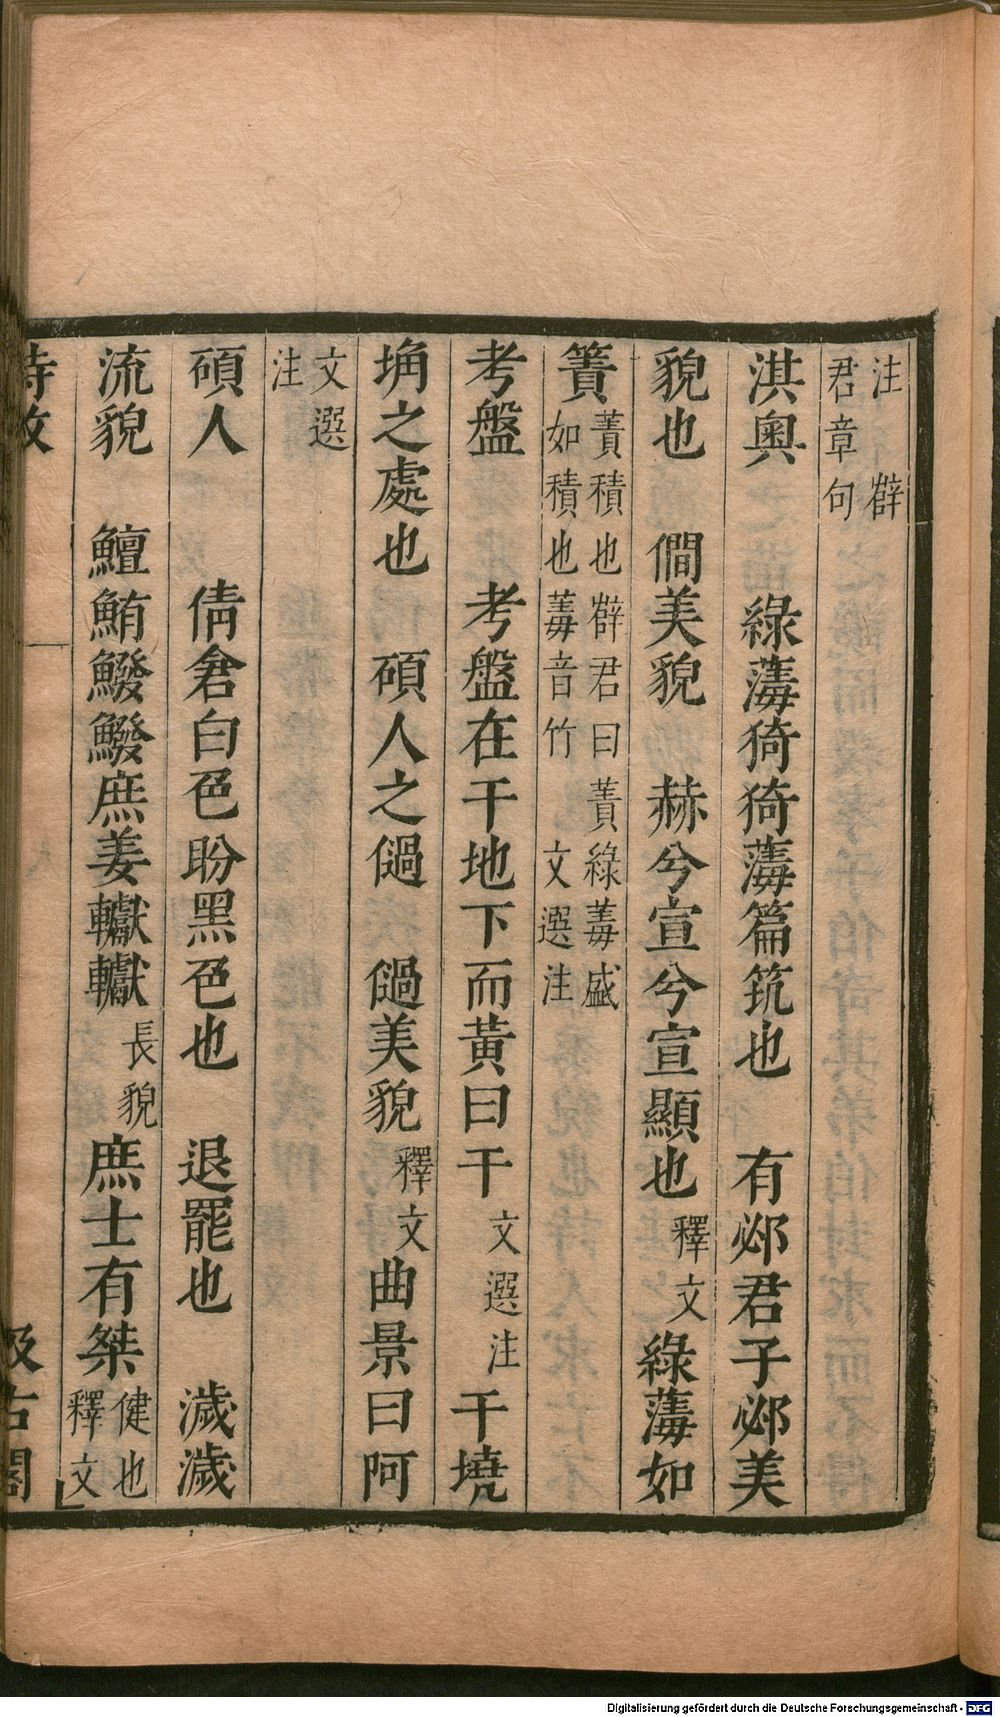 注　薛
君章句
淇奧　　綠薄猗猗薄篇筑也　有邲君子邲美
貌也　僩美貌　赫兮宣兮宣顯也釋文綠薄如
簀簀積也薛君曰簀綠薄盛如積也薄音竹　文選注
考盤　　考盤在干地下而黃曰干文選注　干墝
埆之處也　碩人之𠌉　𠌉美貌釋文曲景曰阿
文選注
碩人　　倩倉白色盼黑色也　退罷也　濊濊
流貌　鱣鮪鱍鱍庶姜钀钀長貌庶士有桀健也釋文
詩攷
汲古閣
Digitalisierung gefördert durch die Deutsche Forschungsgemeinschaft - DFG